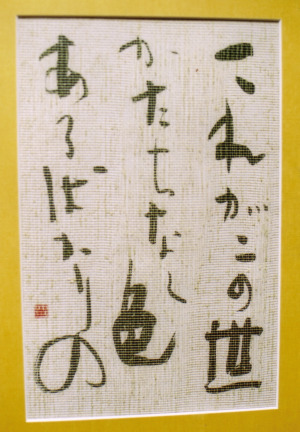 これがこの世
かたちなし色
あるばかりの